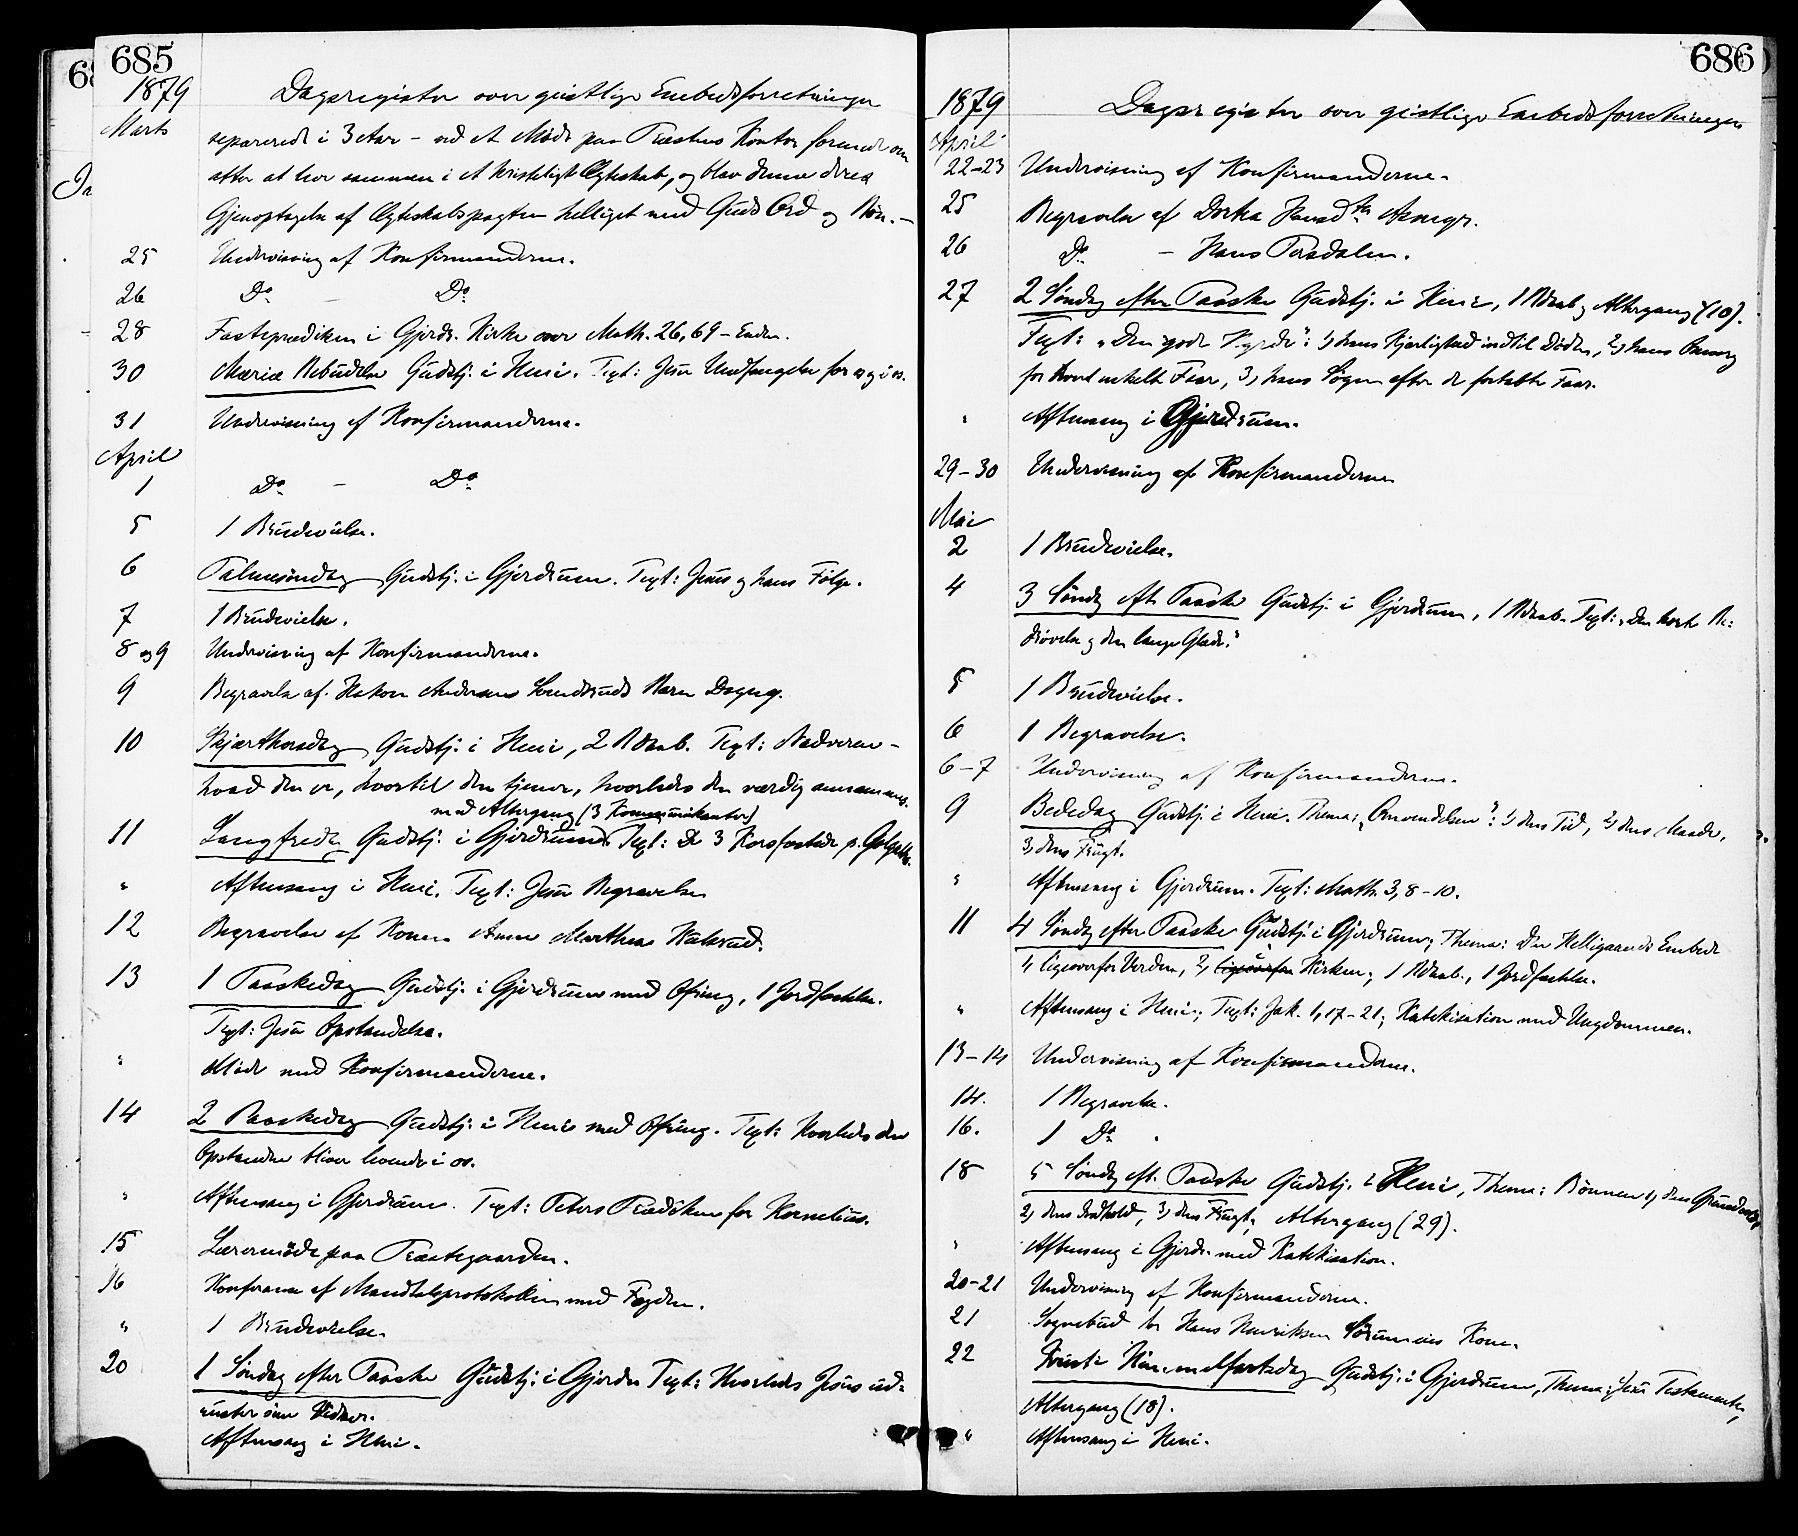 685
1879 Dagsregister over geistlige Embedsforretninger
Marts separerede i 3 Aar – ved et Møde paa Præstens Kontor forenede om
atter at leve sammen i et kristeligt Ægteskab, og blev denne deres
Gjenoptagelse af Ægteskabspagten helliget med Guds Ord og Bøn. –
25 Undervisning af Konfirmanderne.
26 Do – Do
28 Fasteprædiken i Gjerdr. Kirke over Math. 26,69 – Enden.
30 Mariæ Bebudelse Gudstj. i Heni. Text: Jesu Undfangelse for og i os.
31 Undervisning af Konfirmanderne.
April
1 Do – Do
5 1 Brudevielse.
6 Palmesøndag Gudstj. i Gjerdrum. Text: Jesus og hans Følge.
7 1 Brudevielse.
8 og 9 Undervisning af Konfirmanderne.
9 Begravelse af Hakon Andersens Barn Dagny.
10 Skjærthorsdag Gudstj. i Heni, 2 Bdaab. Text: Nadveren –
hvad den er, hvortil den tjener, hvorledes den værdig annammes.
med Altergang (3 Kommunikanter)
11 Langfredag Gudstj. i Gjerdrum. Text: De 3 Korsfæstede p. Golgatha.
" Aftensang i Heni. Text: Jesu Begravelse
12 Begravelse af Konen Anne Marthea Kulsrud.
13 1 Paaskedag Gudstj. i Gjerdrum med Ofring, 1 Jordfæstelse.
Text: Jesu Opstandelse.
" Møde med Konfirmanderne.
14 2 Paaskedag Gudstj. i Heni med Ofring. Text: Hvorledes den
Opstandne bliver levende i os.
" Aftensang i Gjerdrum. Text: Peters Prædiken for Kornelius.
15 Lærermøde paa Præstegaarden.
16 Konferance af Mandtalsprotokollen med Fogden.
" 1 Brudevielse.
20 1 Søndag efter Paaske Gudstj. i Gjerdr. Text: Hvorledes Jesus ud-
ruster sine Vidner.
Aftensang i Heni.
686
1879 Dagsregister over geistlige Embedsforretninger
April
22–23 Undervisning af Konfirmanderne.
25 Begravelse af Dorthea Hansdtr
26 Do – Hans
27 2 Søndag efter Paaske Gudstj. i Heni, 1 Bdaab, Altergang (10).
Text: "Den gode Hyrde": 1) hans Kjærlighed indtil Døden, 2) hans Omsorg
for hvert enkelt Faar, 3) hans Søgen efter de fortabte Faar.
" Aftensang i Gjerdrum.
29–30 Undervisning af Konfirmanderne
Mai
2 1 Brudevielse.
4 3 Søndag eft. Paaske Gudstj. i Gjerdrum, 1 Bdaab. Text: "Den korte Be-
drøvelse og den lange Glæde."
5 1 Brudevielse.
6 1 Begravelse.
6–7 Undervisning af Konfirmanderne.
9 Bededag Gudstj. i Heni. Thema: "Omvendelsen": 1) dens Tid, 2) dens Maade,
3) dens Frugt.
" Aftensang i Gjerdrum. Text: Math. 3, 8–10.
11 4 Søndag efter Paaske Gudstj. i Gjerdrum; Thema: Den Helligaands Embede
1, ligeoverfor Verden, 2, ligeoverfor Kirken; 1 Bdaab., 1 Jordfæstelse.
" Aftensang i Heni; Text: Jak. 1, 17–21; Katekisation med Ungdommen.
13–14 Undervisning af Konfirmanderne.
14. 1 Begravelse.
16. 1 Do
18 5 Søndag eft. Paaske Gudstj. i Heni, Thema: Bønnen 1, dens Grundvold,
2, dens Indhold, 3, dens Frugt; Altergang (29).
" Aftensang i Gjerdr. med Katekisation.
20–21 Undervisning af Konfirmanderne.
21 Sognebud for Hans Henriksen Sørumeies Kone.
22 Kristi Himmelfartsdag Gudstj. i Gjerdrum, Thema: Jesu Testamente,
Altergang (18).
" Aftensang i Heni.